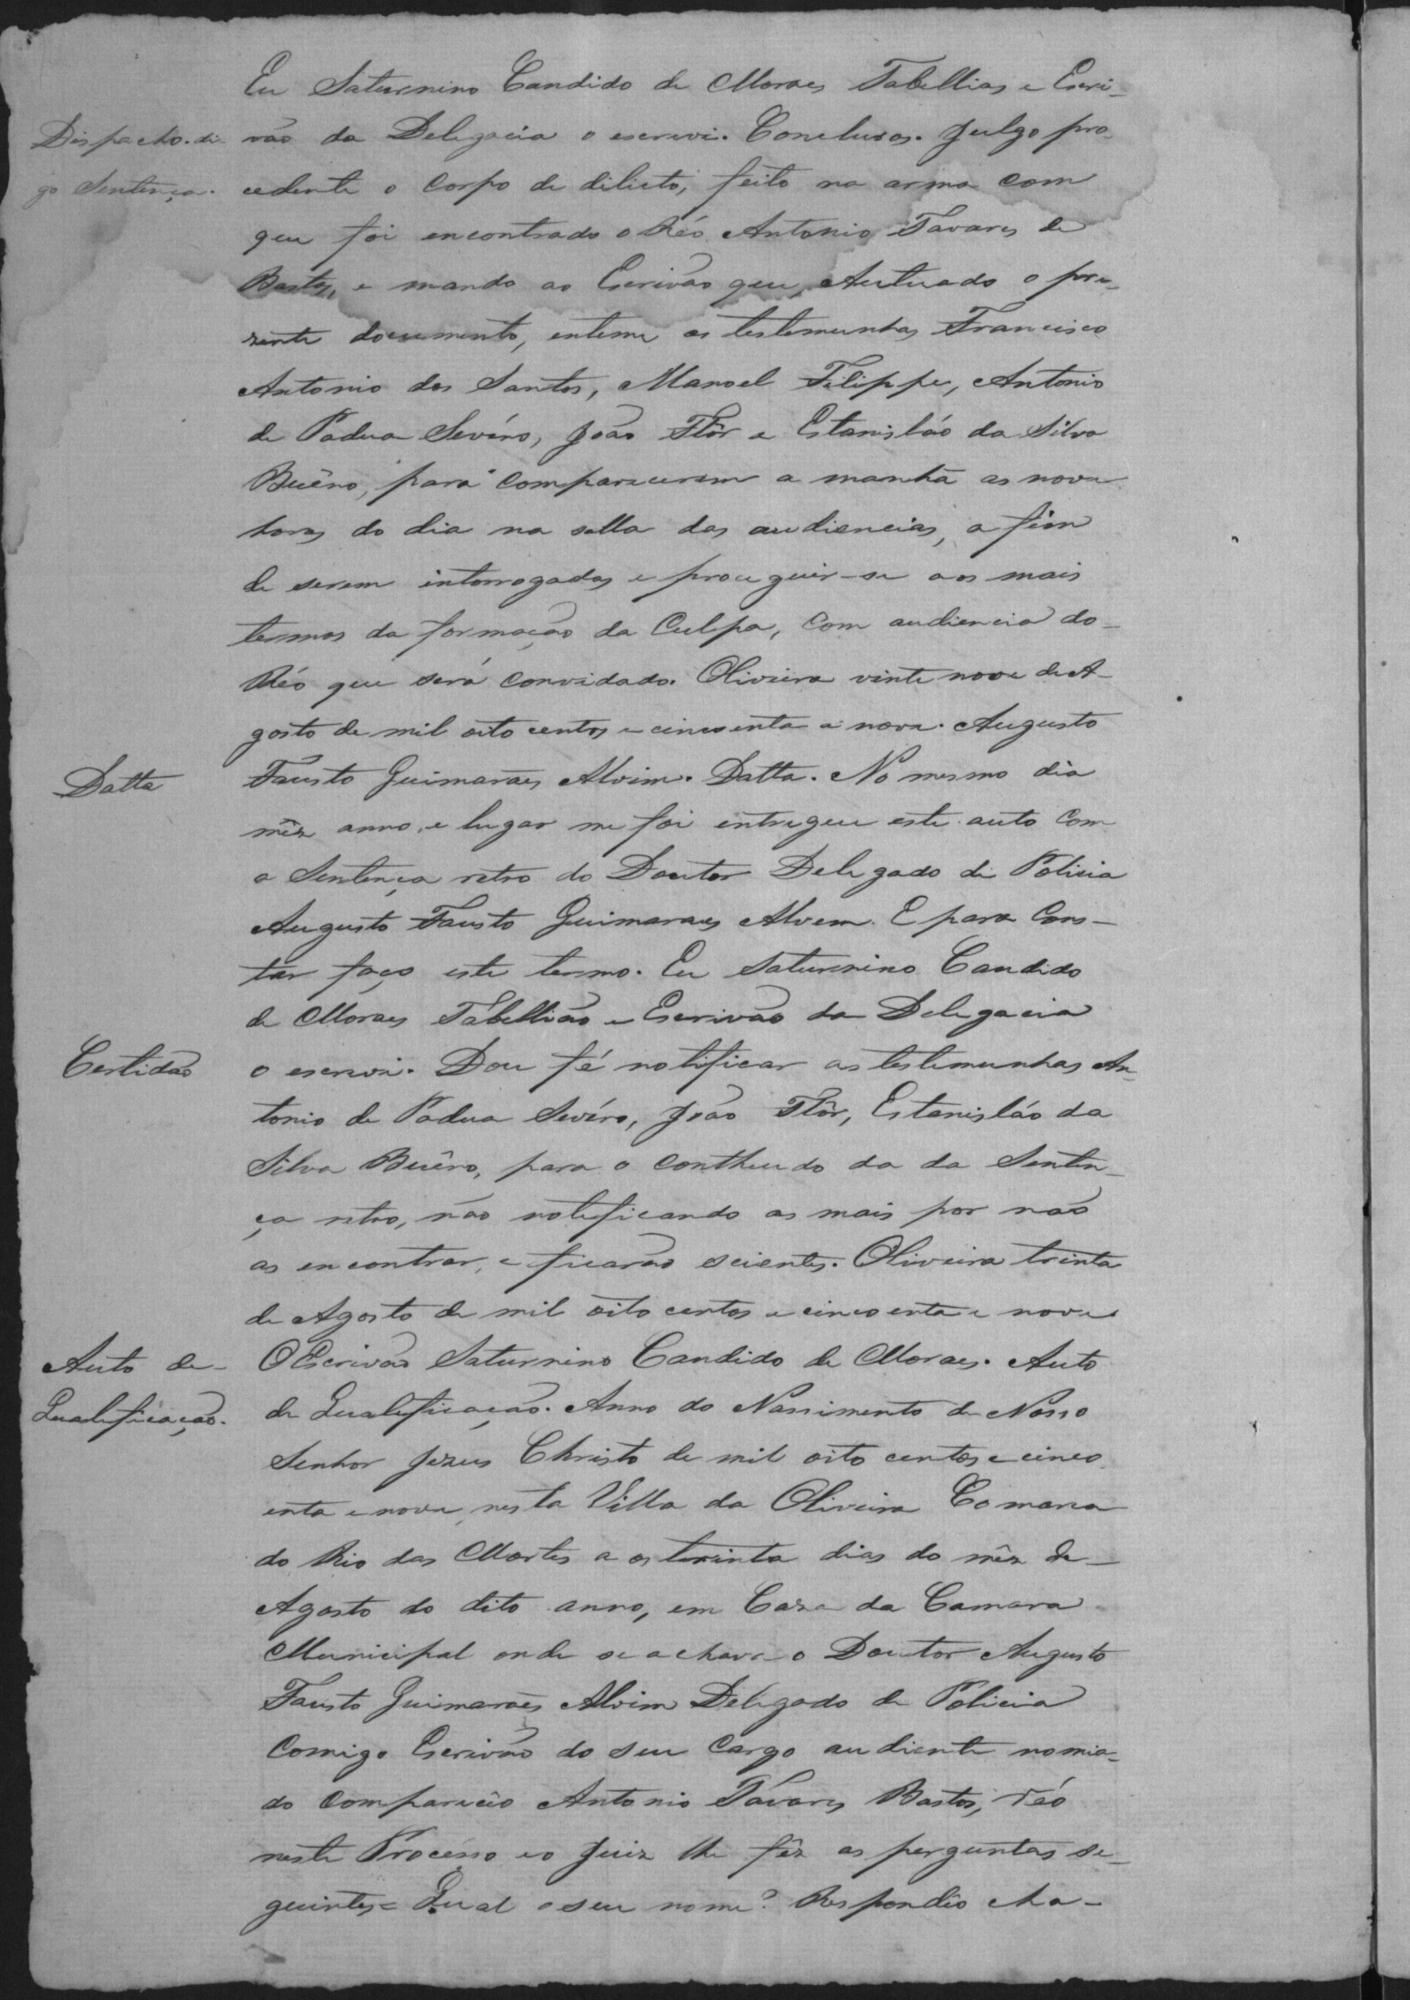 Eu Saturnino Candido de Moraes Tabellias e Escri-
Dispacho. di- vão da Delegacia o escrevi. Conclusos. Julgo pro-
go Sentença. cedente o corpo de dilicto, feito na arma com
que foi encontrado o Réo Antonio Tavares de
Bastos, e mando ao Escrivão que, Autuado o pre-
zente documento, enteme as testemunhas Francisco
Antonio dos Santos, Manoel Filippe, Antonio
de Padua Sevéro, João Flôr e Estanisláo da Silva
Buêno, para comparecerem a manhã as nove
horas do dia na salla das audiencias, a fim
de serem intorrogadas e proceguir-se aos mais
termos da formação da Culpa, com audiencia do
Réo que será convidado. Oliveira vinte nove de A-
gosto de mil oito centos e cincoenta e nove. Augusto
Datta Fausto Guimarães Alvim. Datta. No mesmo dia
mêz anno, e lugar me foi entregue este auto com
a Sentença retro do Doutor Delegado de Policia
Augusto Fausto Guimaraes Alvem. E para Cons-
tar faço este termo. Eu Saturnino Candido
de Moraes Tabellião e Escrivão da Delegacia
Certidão o escrevi. Dou fé notificar as testemunhas An-
tonio de Padua Sevéro, João Flôr, Estanisláo da
Silva Buêno, para o contheudo da da Senten-
ça retro, não notificando as mais por não
as encontrar, e ficarão scientes. Oliveira trinta
de Agosto de mil oito centos e cincoenta e nove
Auto de O Escrivão Saturnino Candido de Moraes. Auto
Qualificação. de Qualificação. Anno do Nassimento de Nosso
Senhor Jezus Christo de mil oito centos e cinco
enta e nove, nesta Villa da Oliveira Comarca
do Rio das Mortes a os trinta dias do mêz de
Agosto do dito anno, em Caza da Camara
Municipal onde se achava o Doutor Augusto
Fausto Guimarães Alvim Delegado de Policia
Comigo Escrivão do seu Cargo audiente nomia-
do compareceo Antonio Tavares Bastos, réo
neste Processo e o Juiz lhe fêz as perguntas se-
guintes = Qual o seu nome? Respondeo cha-